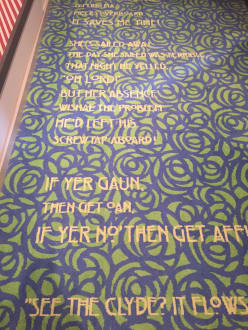 IT SAVES ME TIME!
SHE'S SAILED AWAY
THE DAY SHE SAILED
THAT NIGHT HE YELLED,
"OH LORD!"
BUT HER ABSENCE
THE PROBLEM
HE'D LEFT HIS
SCREWTAP ABOARD!
IF YER GAUN,
THEN GET OAN,
IF YER NO' THEN GET AFF
"SEE THE CLYDE? IT FLOWS